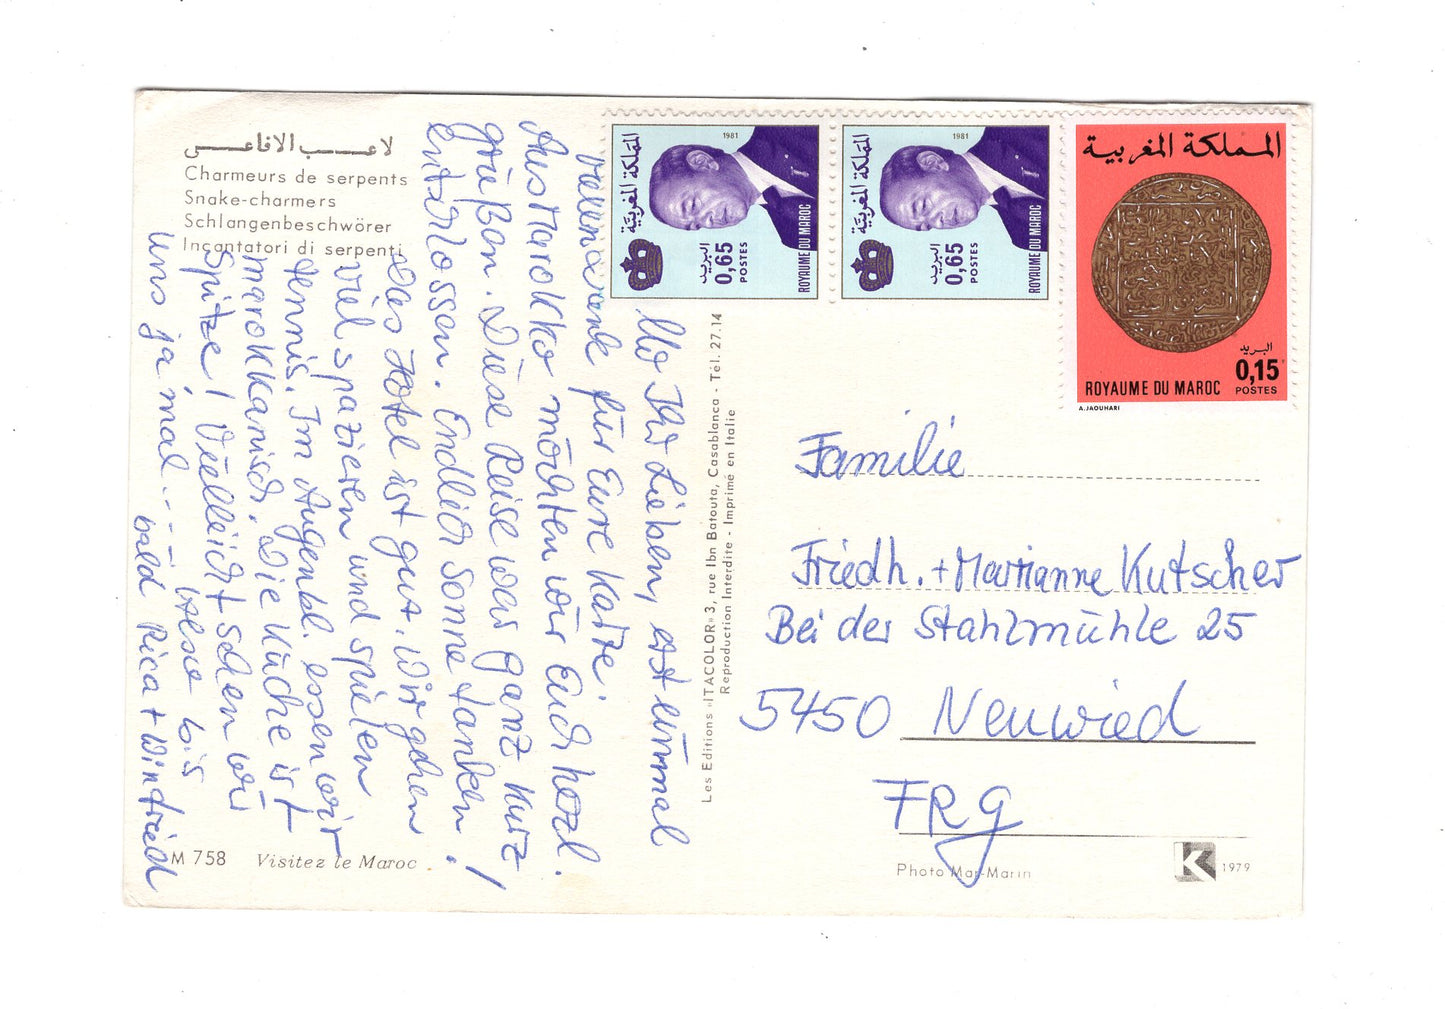 لاعب الافاعى
Charmeurs de serpents
Snake-charmers
Schlangenbeschwörer
Incantatori di serpenti
All Ihr Lieben, erst einmal
vielen Dank für Eure Karte.
Aus Marokko möchten wir Euch herzl.
grüßen. Diese Reise war ganz kurz
entschlossen. Endlich Sonne tanken!
Das Hotel ist gut. Wir gehen
viel spazieren und spielen
Tennis. Im Augenbl. essen wir
marokkanisch. Die Küche ist
Spitze! Vielleicht sehen wir
uns ja mal ---- Also bis
bald Rica + Winfried
M 758 Visitez le Maroc
Les Editions «ITACOLOR» 3, rue Ibn Batouta, Casablanca - Tél. 27.14
Reproduction Interdite - Imprimé en Italie
1981
المملكة المغربية
البريد
0,65
POSTES
ROYAUME DU MAROC
1981
المملكة المغربية
البريد
0,65
POSTES
ROYAUME DU MAROC
المملكة المغربية
البريد
0,15
ROYAUME DU MAROC POSTES
A. JAOUHARI
Familie
Friedh. + Marianne Kutscher
Bei der Stahlmühle 25
5450 Neuwied
FRG
Photo Mar-Marin
K 1979